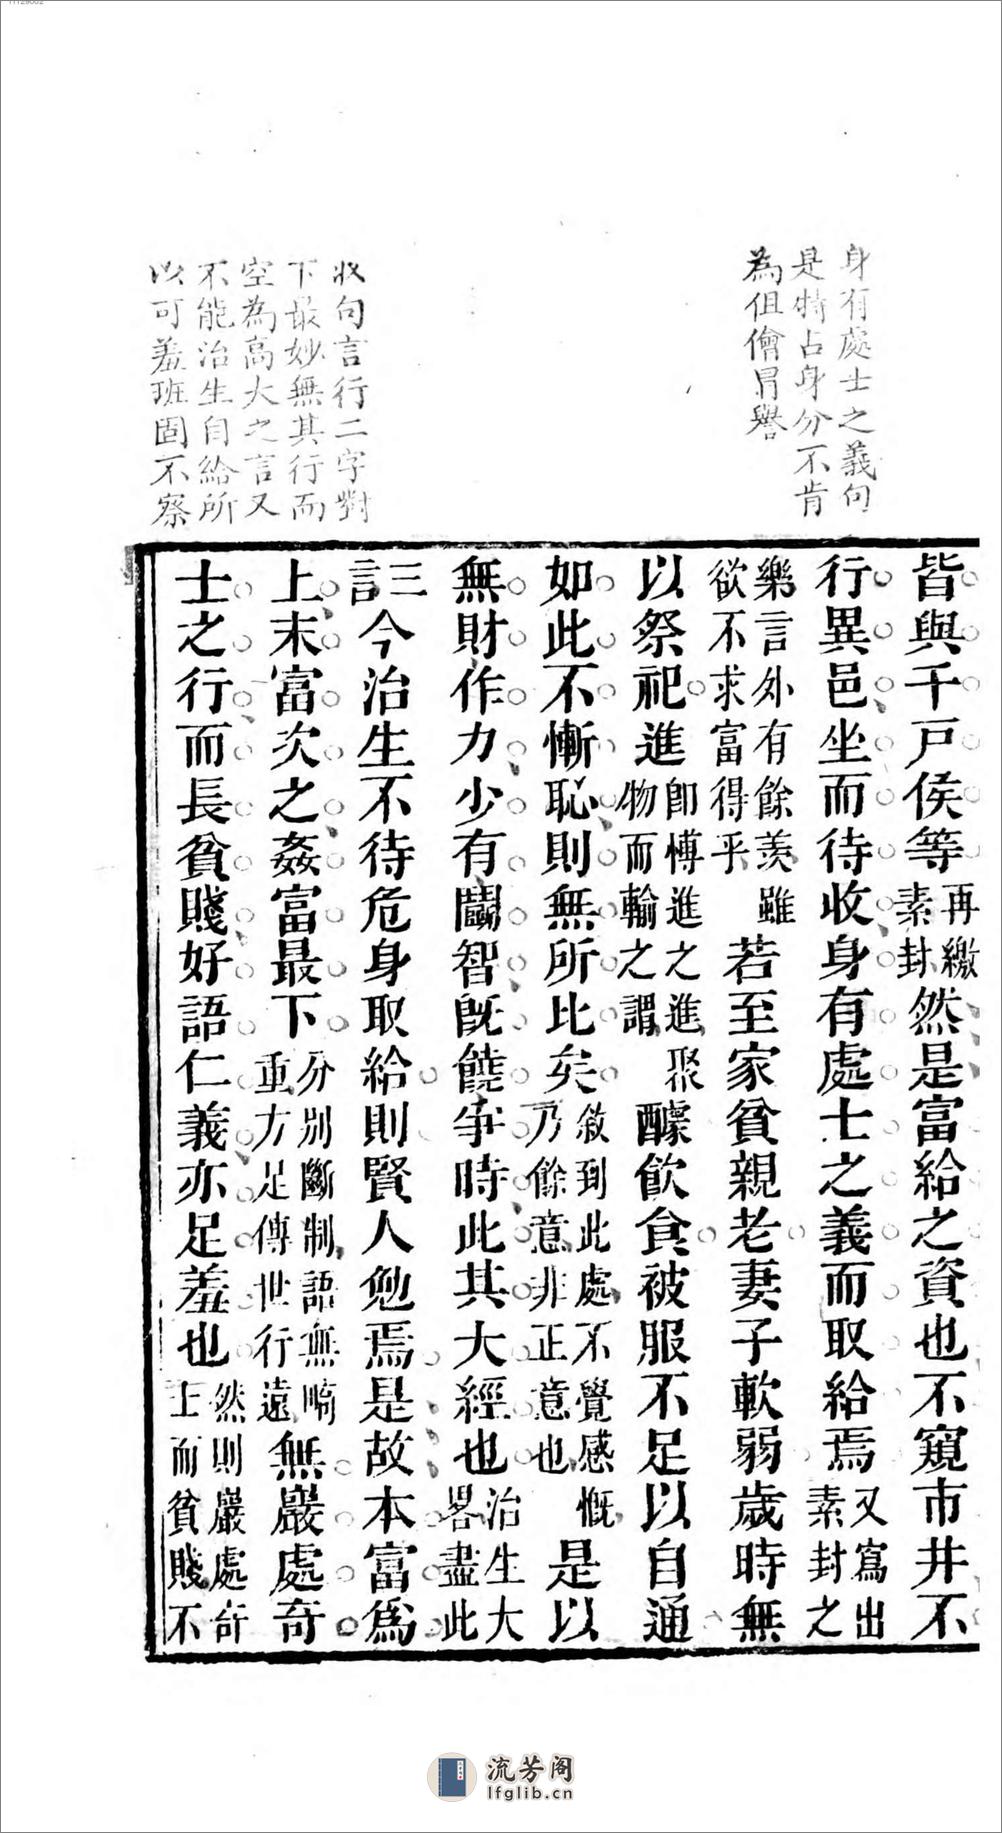 身有處士之義句
是特占身分不肯
為伹儈冒譽
收句言行二字對
下最妙無其行而
空為高大之言又
不能治生自給所
以可羞班固不察
皆與千戸侯等再繳素封然是富給之資也不窺市井不
行異邑坐而待收身有處士之義而取給焉又寫出素封之
樂言外有餘羨雖欲不求富得乎若至家貧親老妻子軟弱歲時無
以祭祀進即愽進之進聚物而輸之謂醵飲食被服不足以自通
如此不慚恥則無所比矣敘到此處不覺感慨乃餘意非正意也是以
無財作力少有鬭智旣饒爭時此其大經也治生大畧盡此
三言今治生不待危身取給則賢人勉焉是故本富爲
上末富次之姦富最下分别斷制語無重方足傳世行遠無巖處奇
士之行而長貧賤好語仁義亦足羞也然則巖處奇士而貧賤不
流芳阁
lfglib.cn